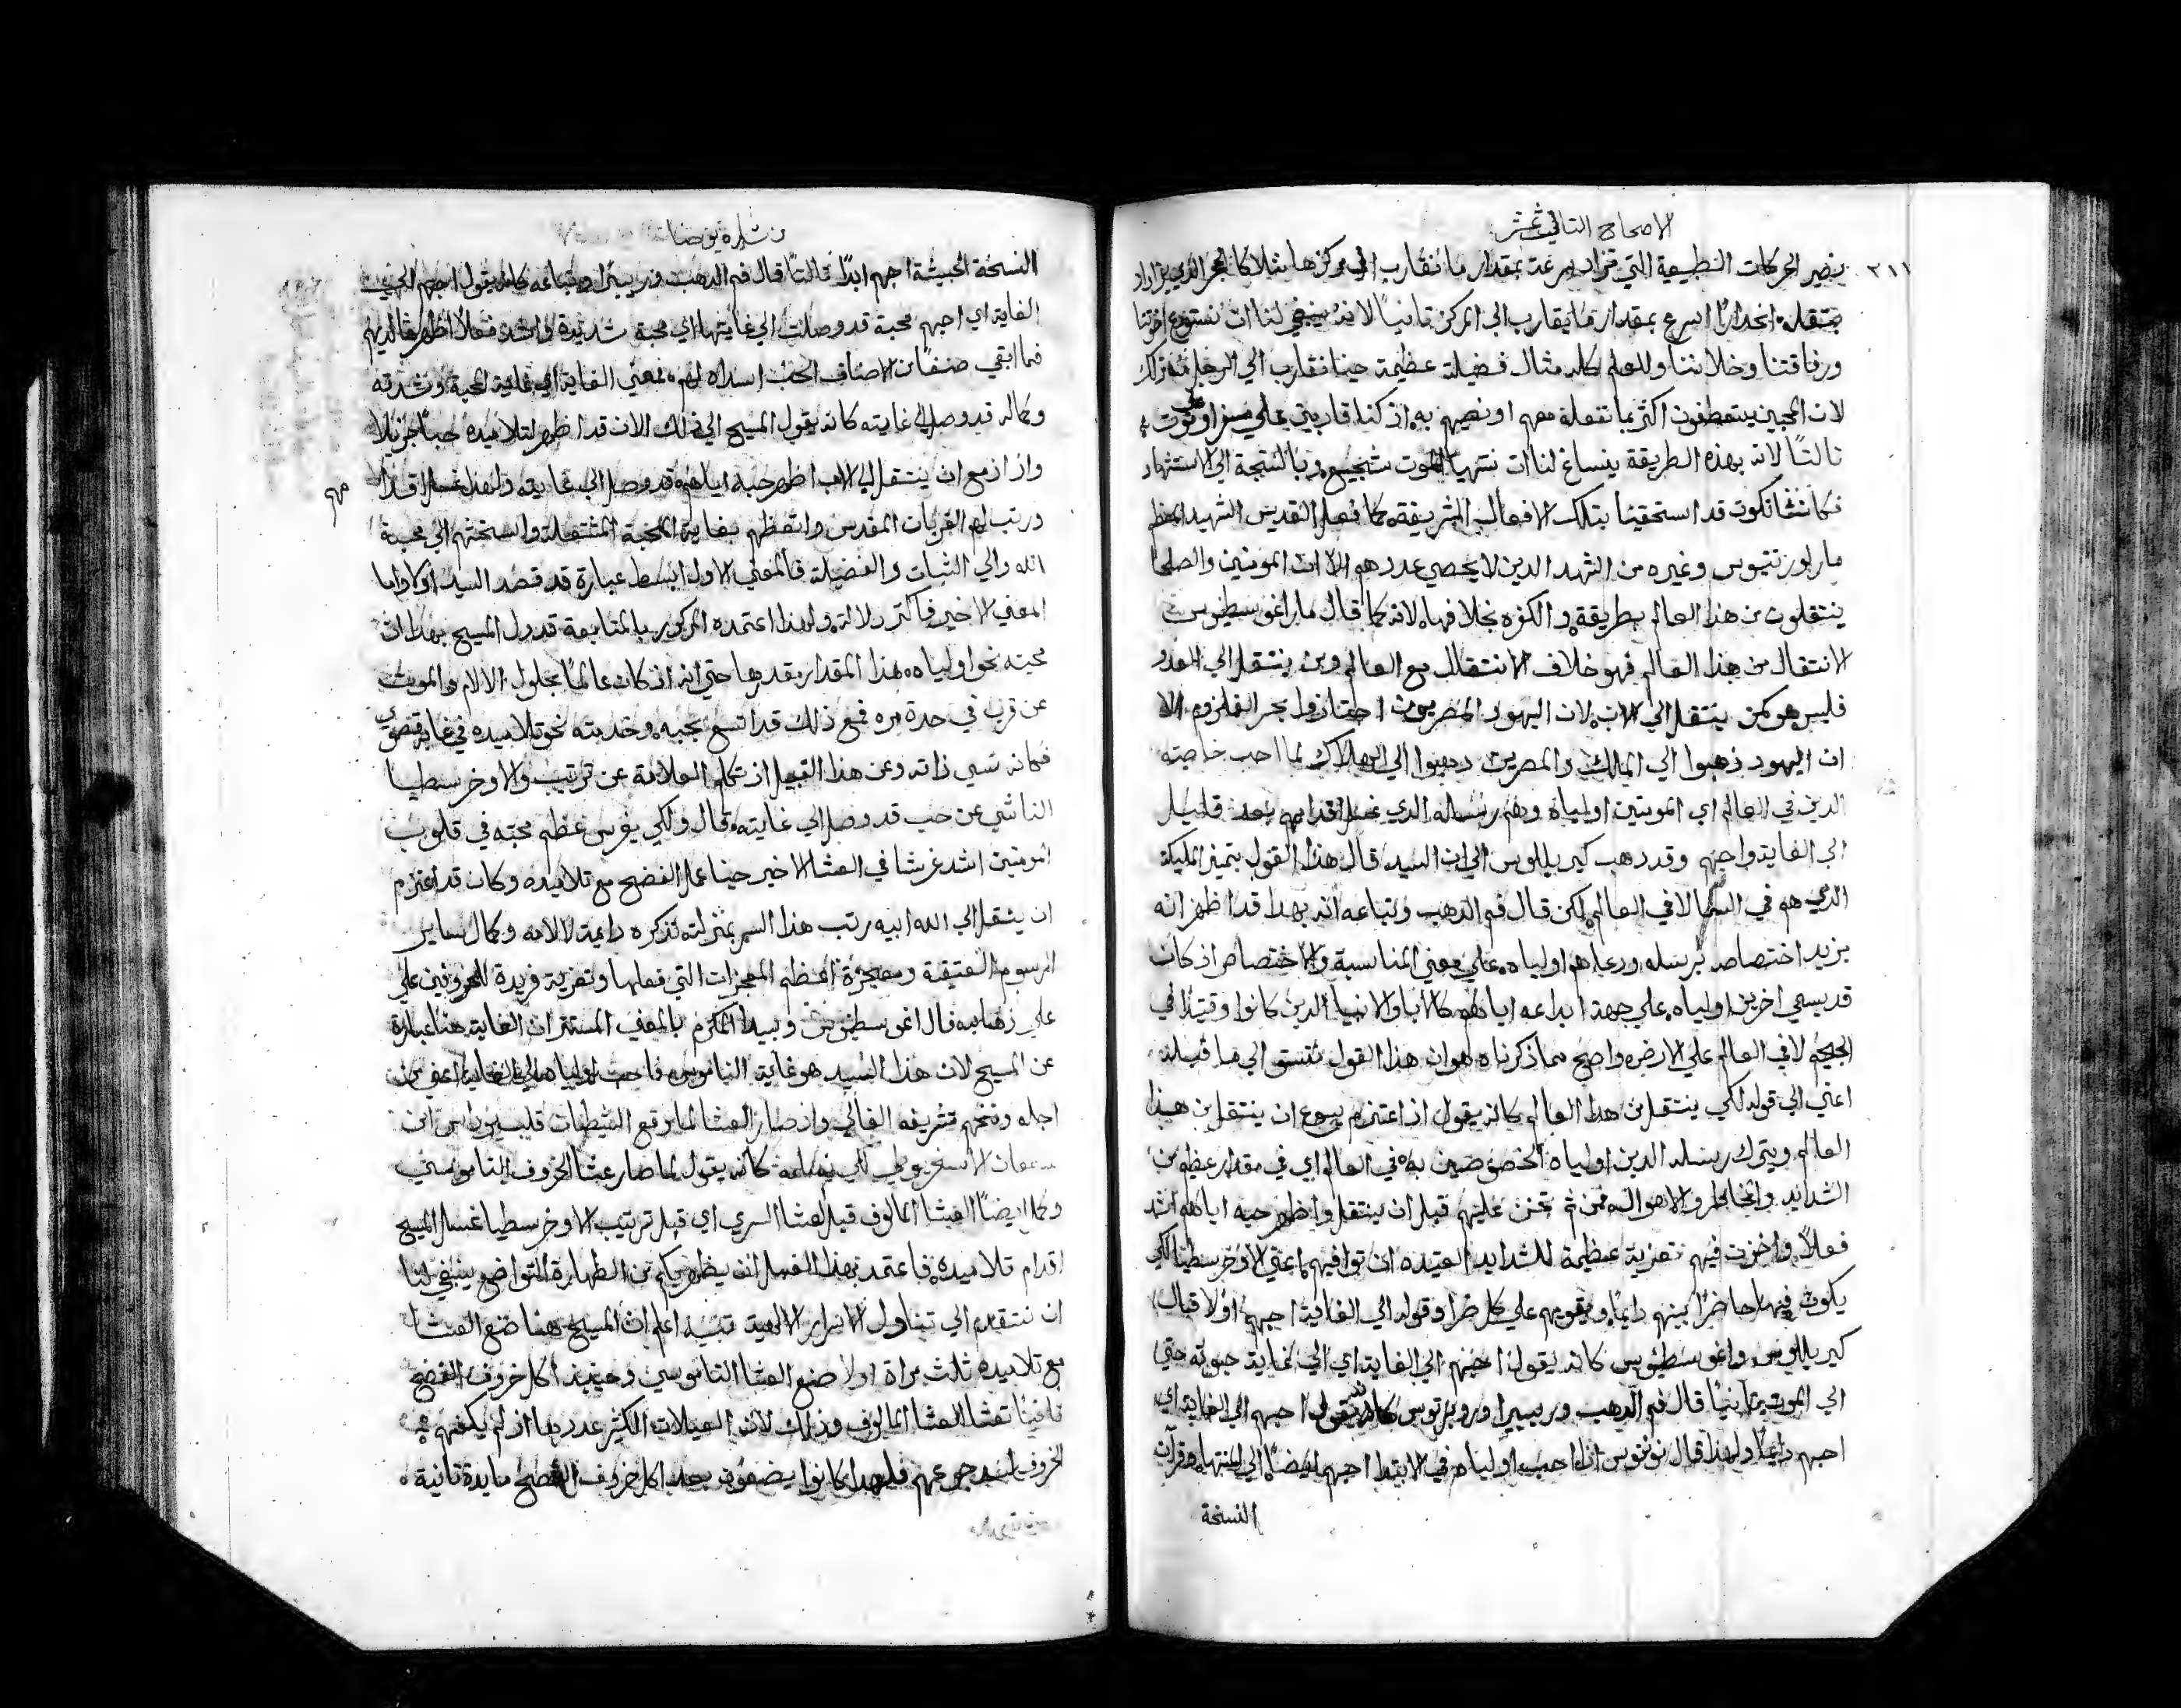 الاصحاح التالت عشر
٢١١
يضير الحركات الطبيعية التي تزاد سرعة بمقدار ما تقارب الي مركزها مثلا كالحجر الدي يزداد
بتقله انحدارًا اسرع بمقدار ما يقارب الي المركز تانيًا لانه ينبغي لنا ان نستودع اخوتنا
ورفاقتنا وخلاننا وللعالم كله مثال فضيلة عظيمة حينما نقارب الي الرحيل
لان المحبين يتعطفون اكثر بما نفعله معهم او نصيهم به اذ كنا قاربين علي سفر او موت
تالتًا لانه بهذه الطريقة ينساغ لنا ان نتهيا للموت وبالنتيجة الي الاستشهاد
فكاننا نكون قد استحقينا بتلك الافعال الشريفة كما فعل القديس الشهيد المعظم
مار لورنتيوس وغيره من الشهدا الدين لا يحصي عددهم الا ان المومنين والصلحا
ينتقلون من هذا العالم بطريقة والكفره بخلافها لانه كما قال مار اغوسطينوس
الانتقال من هذا العالم فهو خلاف الانتقال مع العالم ومن ينتقل الي العدو
فليس هو كمن ينتقل الي الاب لان اليهود المصريون اجتازوا بحر القلزم الا
ان اليهود ذهبوا الي الملك والمصريين ذهبوا الي الهلاك لما احب خاصته
الدين في العالم اي المومنين اولياه وهم رسله الدي غسل اقدامهم بعد قليل
الي الغاية احبهم وقد ذهب كيريللوس الي ان السيد قال هذا القول بتميز المليكة
الدي هو في السما لا في العالم لكن قال فم الذهب وتباعه انه بهدا قد اظهر انه
يزيد اختصاص برسله ورعاهم اولياه علي معني المناسبة والاختصاص اذ كان
قد يسمي اخرين اولياه علي جهة ابداعه اياهم كالابا والانبيا الدين كانوا وقتيدًا في
الجحيم لا في العالم علي الارض واضح مما ذكرناه هو ان هذا القول متسق الي ما قبله
اعني الي قوله لكي ينتقل من هذا العالم كانه يقول اذ اعتزم يسوع ان ينتقل من هذا
العالم ويترك رسله الدين اولياه المخصوصين به في العالم اي في مقدار عظيم من
الشدايد والمخاطر والاهوال فمن ثم تحنن عليهم قبل ان ينتقل واظهر حبه اياهم اشد
فعلاً واخزن فيهم تعزية عظيمة للشدايد العتيده ان توافيهم اعني الاوخرسطيا لكي
يكون فيها حاضرًا بينهم دايمًا ويقويهم علي كل ضرا وقوله الي الغاية احبهم اولا قال
كيريللوس واغوسطينوس كانه يقول احبهم الي الغاية اي الي نهاية حيوته حتي
الي الموت تانيًا قال فم الذهب وريبيرا وروبرتوس كانه يقول احبهم الي الغاية اي
احبهم دايمًا ولهذا قال نونوس اذا احب اولياه في الابتدا احبهم ايضًا الي المنتها وقرات
النسخة
بشاره يوحنا
النسخة الحبشية احبهم ابدًا تالتًا قال فم الذهب وريبيرا وتباعه كانه يقول احبهم الي
الغاية اي احبهم محبة قد وصلت الي غايتها اي محبة شديدة واشد فعلاً اظهرها لديهم
فما ابقي صنفًا من الاصناف الحب اسداه لهم فمعني الغاية اي غاية المحبة وشدته
وكماله قد وصل الي غايته كانه يقول المسيح الي ذلك الان قد اظهر لتلاميده حبًا جزيلا
واذ ازمع ان ينتقل الي الاب اظهر حبه اياهم قد وصل الي غايته ولهذا غسل اقدا
مهم
ورتب لهم القربان المقدس واتعظهم بغاية المحبة المشتعلة والسخنتهم الي محبة
الله والي الثبات والفضيلة فالمعني الاول ابسط عبارة قد قصد السيد اولا واما
المعني الاخير فاكتر دلالة ولهذا اعتمده المدكور بالمتابعة قد ول المسيح بهذا ان
محبته نحو اولياه هذا المقدار مقدرها حتي انه اذ كان عالمًا بحلول الالام والموت
عن قرب في حدة مره فمع ذلك قد اتسع بحبه وخدمته نحو تلاميده في غاية قصوي
فكانه نسي ذاته وعن هذا القبيل اذ تكلم العلامة عن ترتيب الاوخرسطيا
الناشي عن حب قد وصل الي غايته قال ولكي يغرس عظم محبته في قلوب
المومنين اشد غرسًا في العشا الاخير حينما عمل الفصح مع تلاميده وكان قد اعتزم
ان ينتقل الي الله ابيه رتب هذا السر بمنزلة تذكره دايمة لالامه وكمال ساير
الرسوم العتيقة ومعجزة اعظم المعجزات التي فعلها وتعزية فريدة للمحزونين علي
علي ذهابه قال اغوسطينوس وبيدا المكرم بالمعني المستتر ان الغاية هنا عبارة
عن المسيح لان هذا السيد هو غاية الناموس فاحب اولياه الي الغاية اعني من
اجله ومنحهم تشريفه الغالي واذ صار العشا لما وقع الشيطان قلب يهوداس ابن
سمعان الاسخريوطي لكي يسلمه كانه يقول لما صار عشا الخروف الناموسي
وكمل ايضًا العشا المالوف قبل العشا السري اي قبل ترتيب الاوخرسطيا غسل المسيح
اقدام تلاميده فاعتمد بهذا الغسل ان يظهر بكم من الطهارة التواضع ينبغي لنا
ان نتقدم الي تناول الاسرار الالهية تنبيه اعلم ان المسيح هنا صنع العشا
مع تلاميده ثلث مراة اولا صنع العشا الناموسي وحينيد اكل خروف الفصح
تانيًا تعشا العشا المالوف وذلك لان العيلات الكثير عددها اذ لم يكفهم
الخروف لسد جوعهم فلهدا كانوا يضعون بعد اكل خروف الفصح مايدة تانية